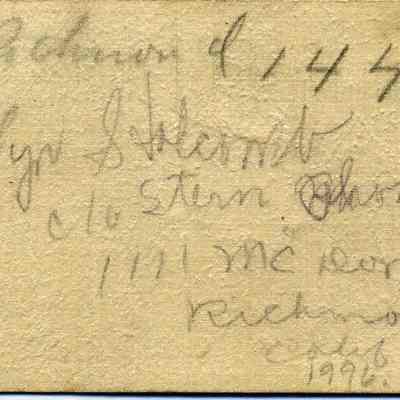 Richmond 144
lyn S Holcomb
c/o Stern Pho
1111 Mc Don
Richmo
Calif
1996.